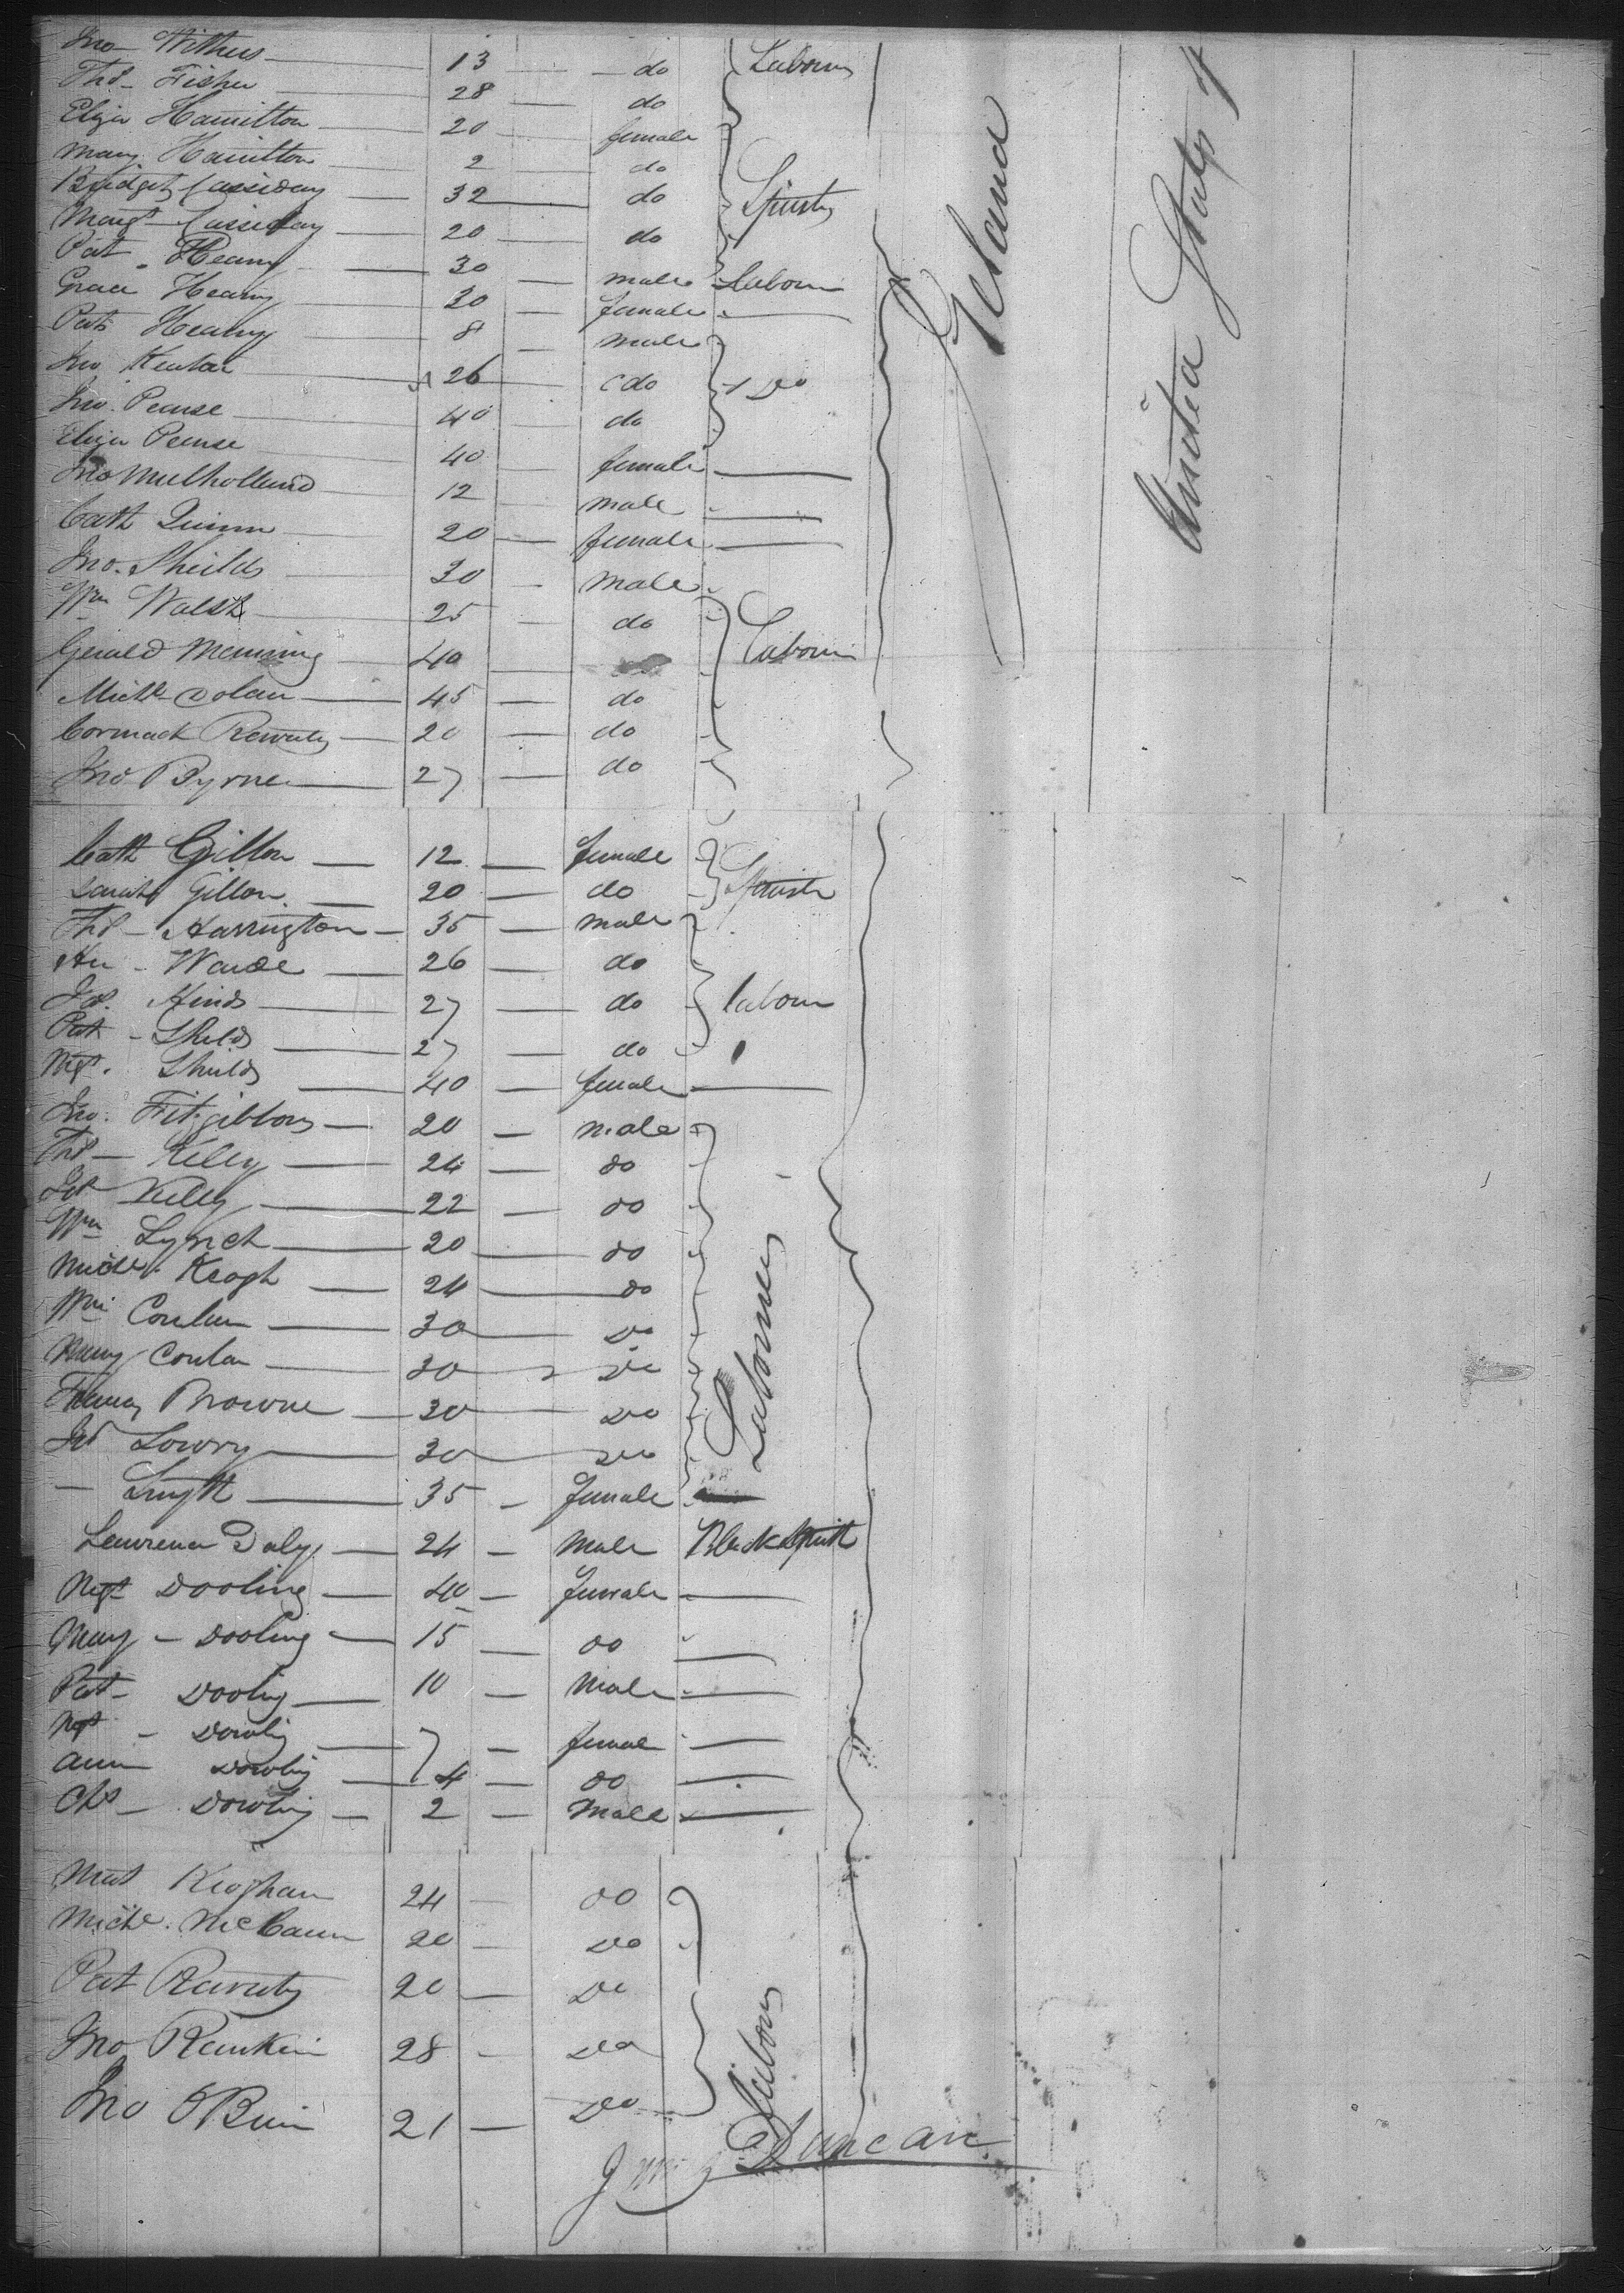 Jno Withers 13 do Labourer
Thos Fisher 28 do
Eliza Hamilton 20 female
Mary Hamilton 2 do
Bridget Cassiday 32 do Spinster
Margt Cassiday 20 do
Pat Heany 30 male Labourer
Grace Heany 30 female
Pat Heany 8 male
Jno 26 do Do
Jno. Pearse 40 do
Eliza Pearse 40 female
Jno Mulholland 12 male
Cath Quinn 20 female
Jno. Sheilds 30 male
Wm Walsh 25 do
Gerald Manning 40 Labourer
Michl Dolan 45 do
Cormack 20 do
Jno Byrne 27 do
Ireland
United States
Cath Gillon 12 female
Gillon 20 do Spinster
Thos Harrington 35 male
Wade 26 do
Jas. Hinds 27 do labourer
Pat Shields 27 do
Mgt. Shields 40 female
Jno. Fitzgibbons 20 male
Thos Kelly 24 do
Kelly 22 do
Wm Lynch 20 do
Michl. Keogh 24 do
Wm Conlan 30 Do
Conlan 30 Do
Browne 30 Do
Lowry 30 Do
Smyth 35 female
Labourers
Lawrence Daly 24 male Black Smith
Mgt Dooling 40 female
Mary Dooling 15 do
Pat Dooling 10 male
Mgt Dowling 7 female
Ann Dowling 4 do
Chs Dowling 2 male
Mat Keoghan 24 do
Michl. McCann 20 Do
Pat 20 Do
Jno Rankin 28 Do
Jno 21 Do
Labourers
Duncan